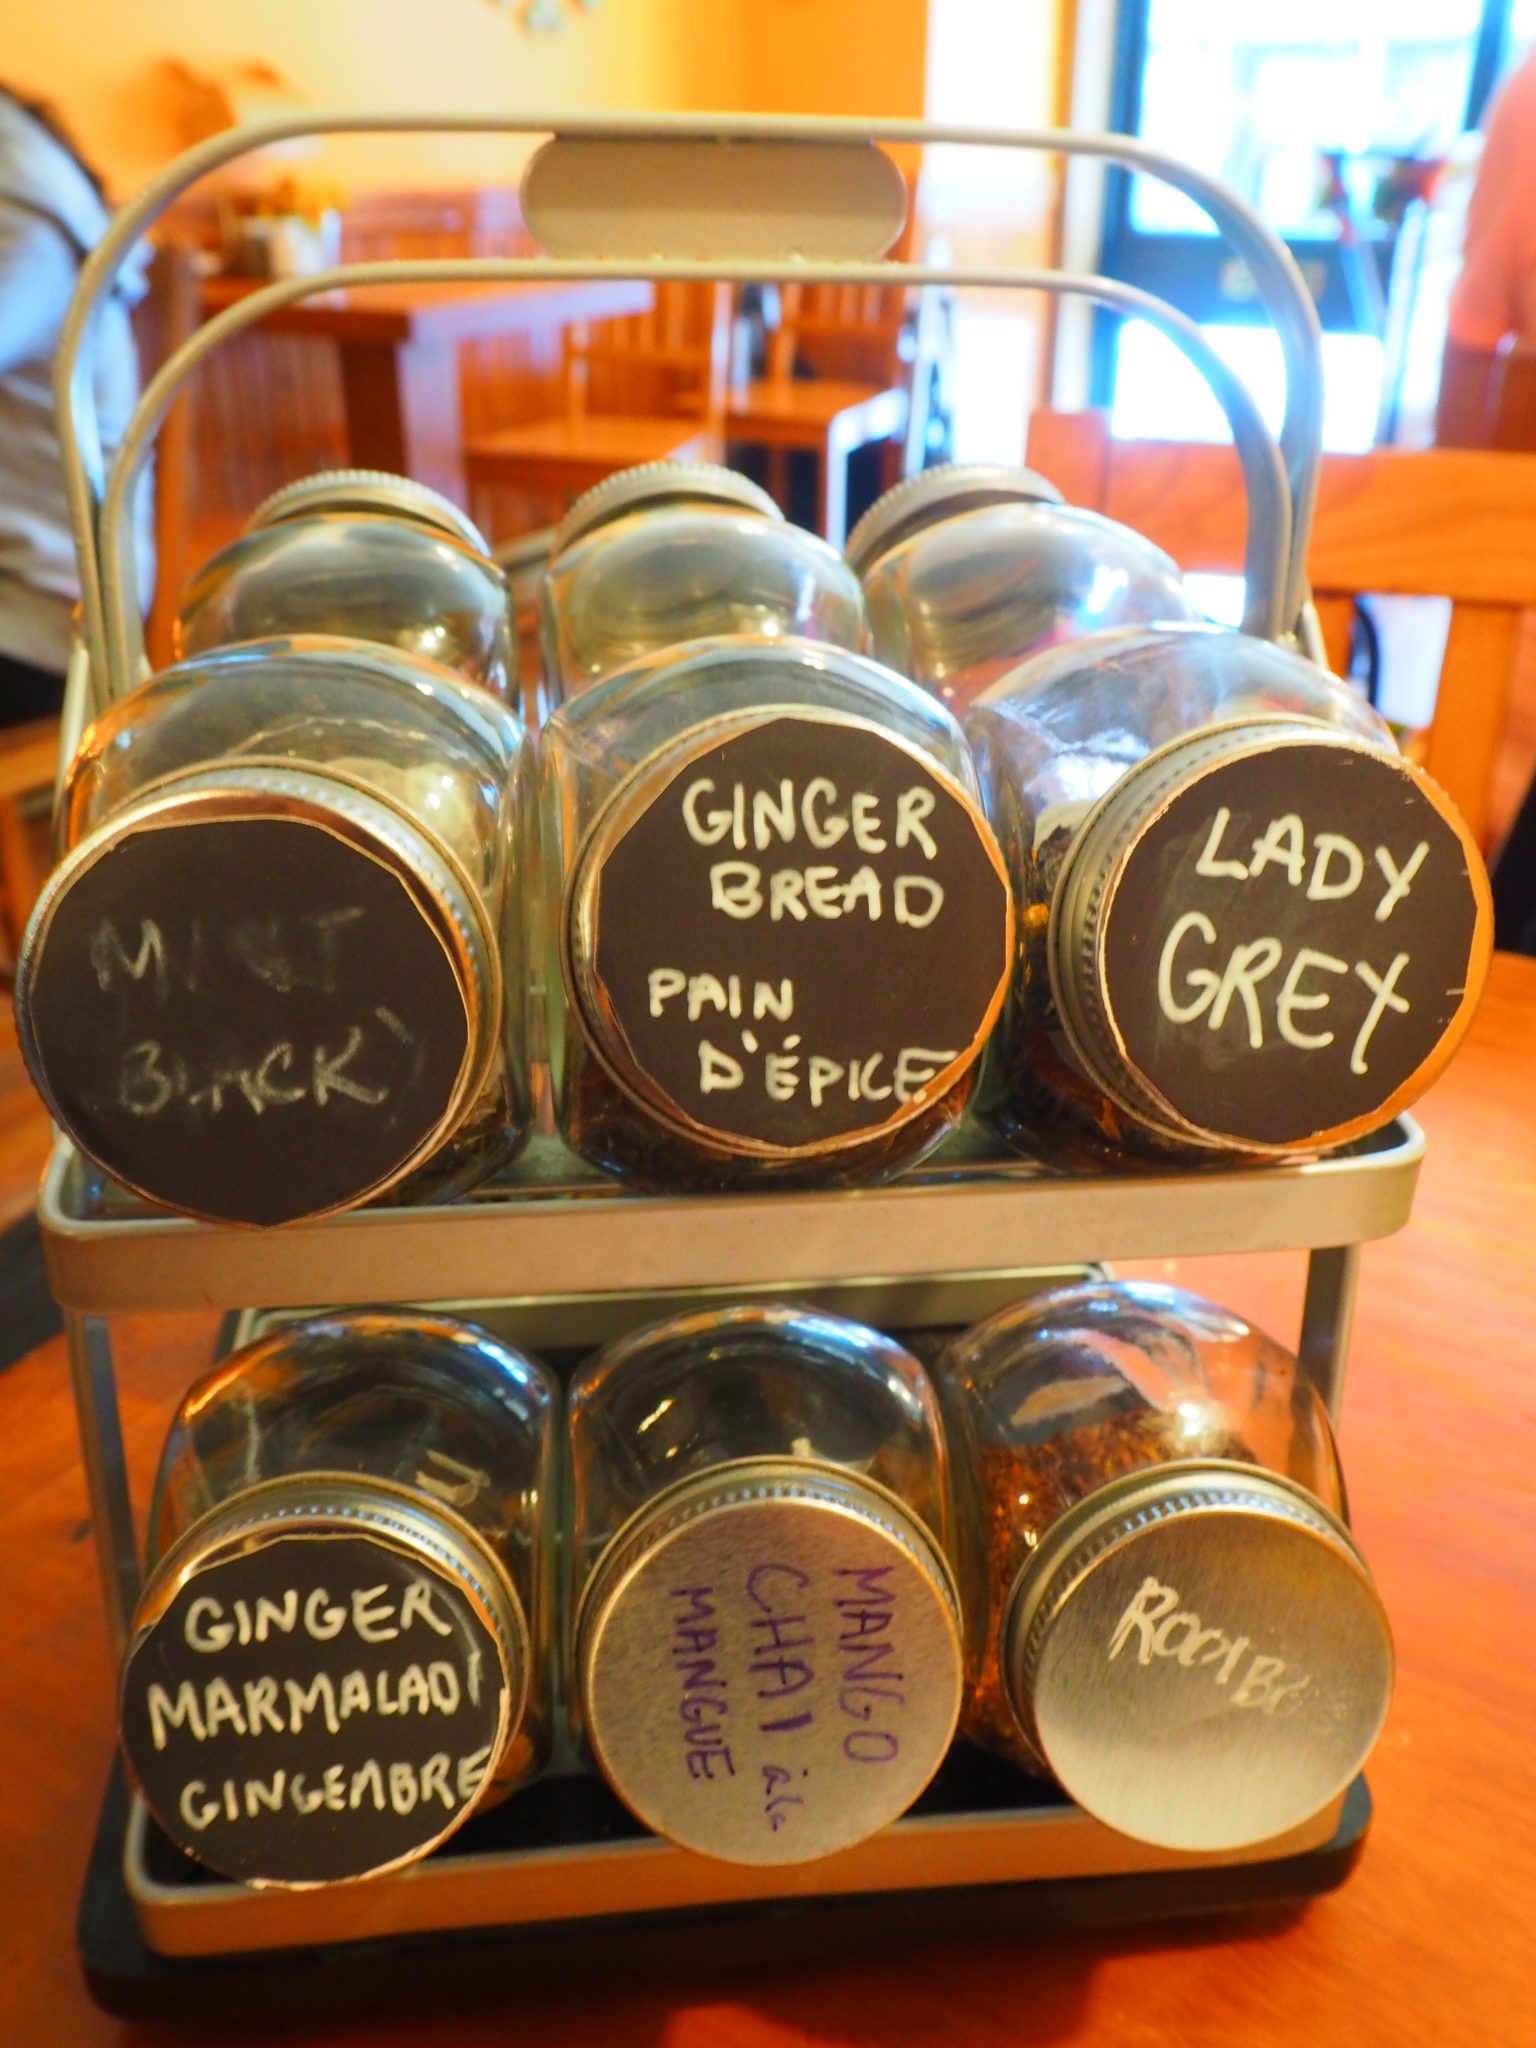 MINT
BLACK)
GINGER
BREAD
PAIN
D'ÉPICE
LADY
GREY
GINGER
MARMALADE
GINGEMBRE
MANGO
CHAI à la
MANGUE